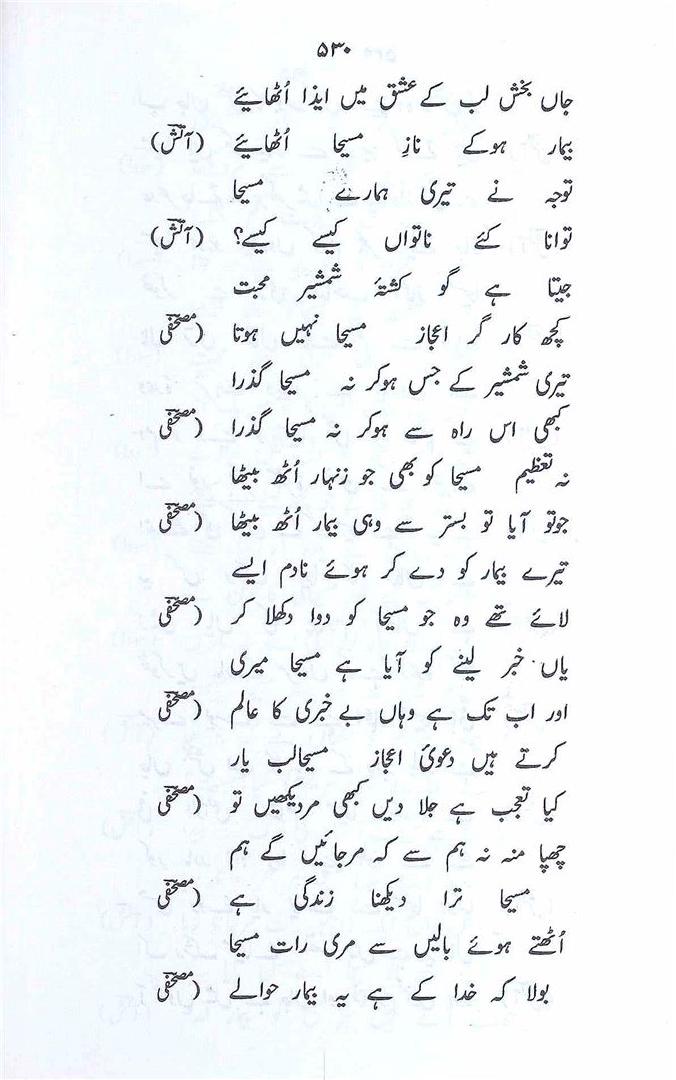 ۵۳۰
جاں بخش لب کے عشق میں ایذا اُٹھایئے
بیمار ہوکے نازِ مسیحا اُٹھایئے (آتش)
توجہ نے تیری ہمارے مسیحا
توانا کئے ناتواں کیسے کیسے؟ (آتش)
جیتا ہے گو کشتۂ شمشیر محبت
کچھ کار گر اعجاز مسیحا نہیں ہوتا (مصحفی
تیری شمشیر کے جس ہوکر نہ مسیحا گذرا
کبھی اس راہ سے ہوکر نہ مسیحا گذرا (مصحفی
نہ تعظیم مسیحا کو بھی جو زنہار اُٹھ بیٹھا
جوتو آیا تو بستر سے وہی بیمار اُٹھ بیٹھا (مصحفی
تیرے بیمار کو دے کر ہوئے نادم ایسے
لائے تھے وہ جو مسیحا کو دوا دکھلا کر (مصحفی
یاں خبر لینے کو آیا ہے مسیحا میری
اور اب تک ہے وہاں بے خبری کا عالم (مصحفی
کرتے ہیں دعویٔ اعجاز مسیحالب یار
کیا تعجب ہے جلا دیں کبھی مردیکھیں تو (مصحفی
چھپا منہ نہ ہم سے کہ مرجائیں گے ہم
مسیحا ترا دیکھنا زندگی ہے (مصحفی
اُٹھتے ہوئے بالیں سے مری رات مسیحا
بولا کہ خدا کے ہے یہ بیمار حوالے (مصحفی